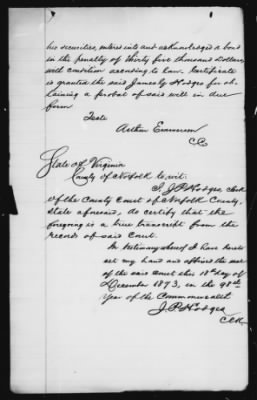 his securities, entered into and acknowledged a bond
in the penalty of thirty five thousand Dollars
with condition according to law. Certificate
is granted the said James G Hodges for ob-
taining a probat of said will in due
form
Teste
Arthur Emmerson
CC
State of Virginia
County of Norfolk to wit:
I, J.P. Hodges, clerk
of the County Court of Norfolk County,
State aforesaid, do certify that the
foregoing is a true transcript from the
records of said Court.
In testimony whereof I have hereto
set my hand and affixed the seal
of the said Court this 18th day of
December 1873, in the 98th
Year of the Commonwealth
J.P. Hodges
Clk